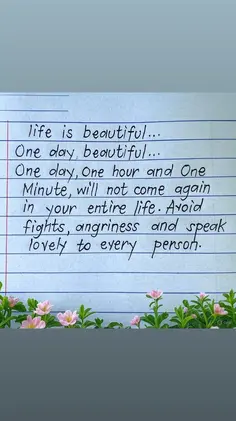 life is beautiful...
One day, beautiful...
One day, One hour and One
Minute, will not come again
in your entire life. Avoid
fights, angriness and speak
lovely to every person.